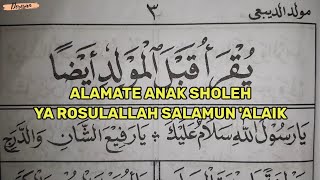 Design
٣
مولد الديبعي
يُقْرَأُ قَبْلَ الْمَوْلِدِ أَيْضًا
ALAMATE ANAK SHOLEH
YA ROSULALLAH SALAMUN 'ALAIK
يَا رَسُولَ اللهِ سَلَامٌ عَلَيْكَ ۞ يَا رَفِيعَ الشَّانِ وَالدَّرَجِ